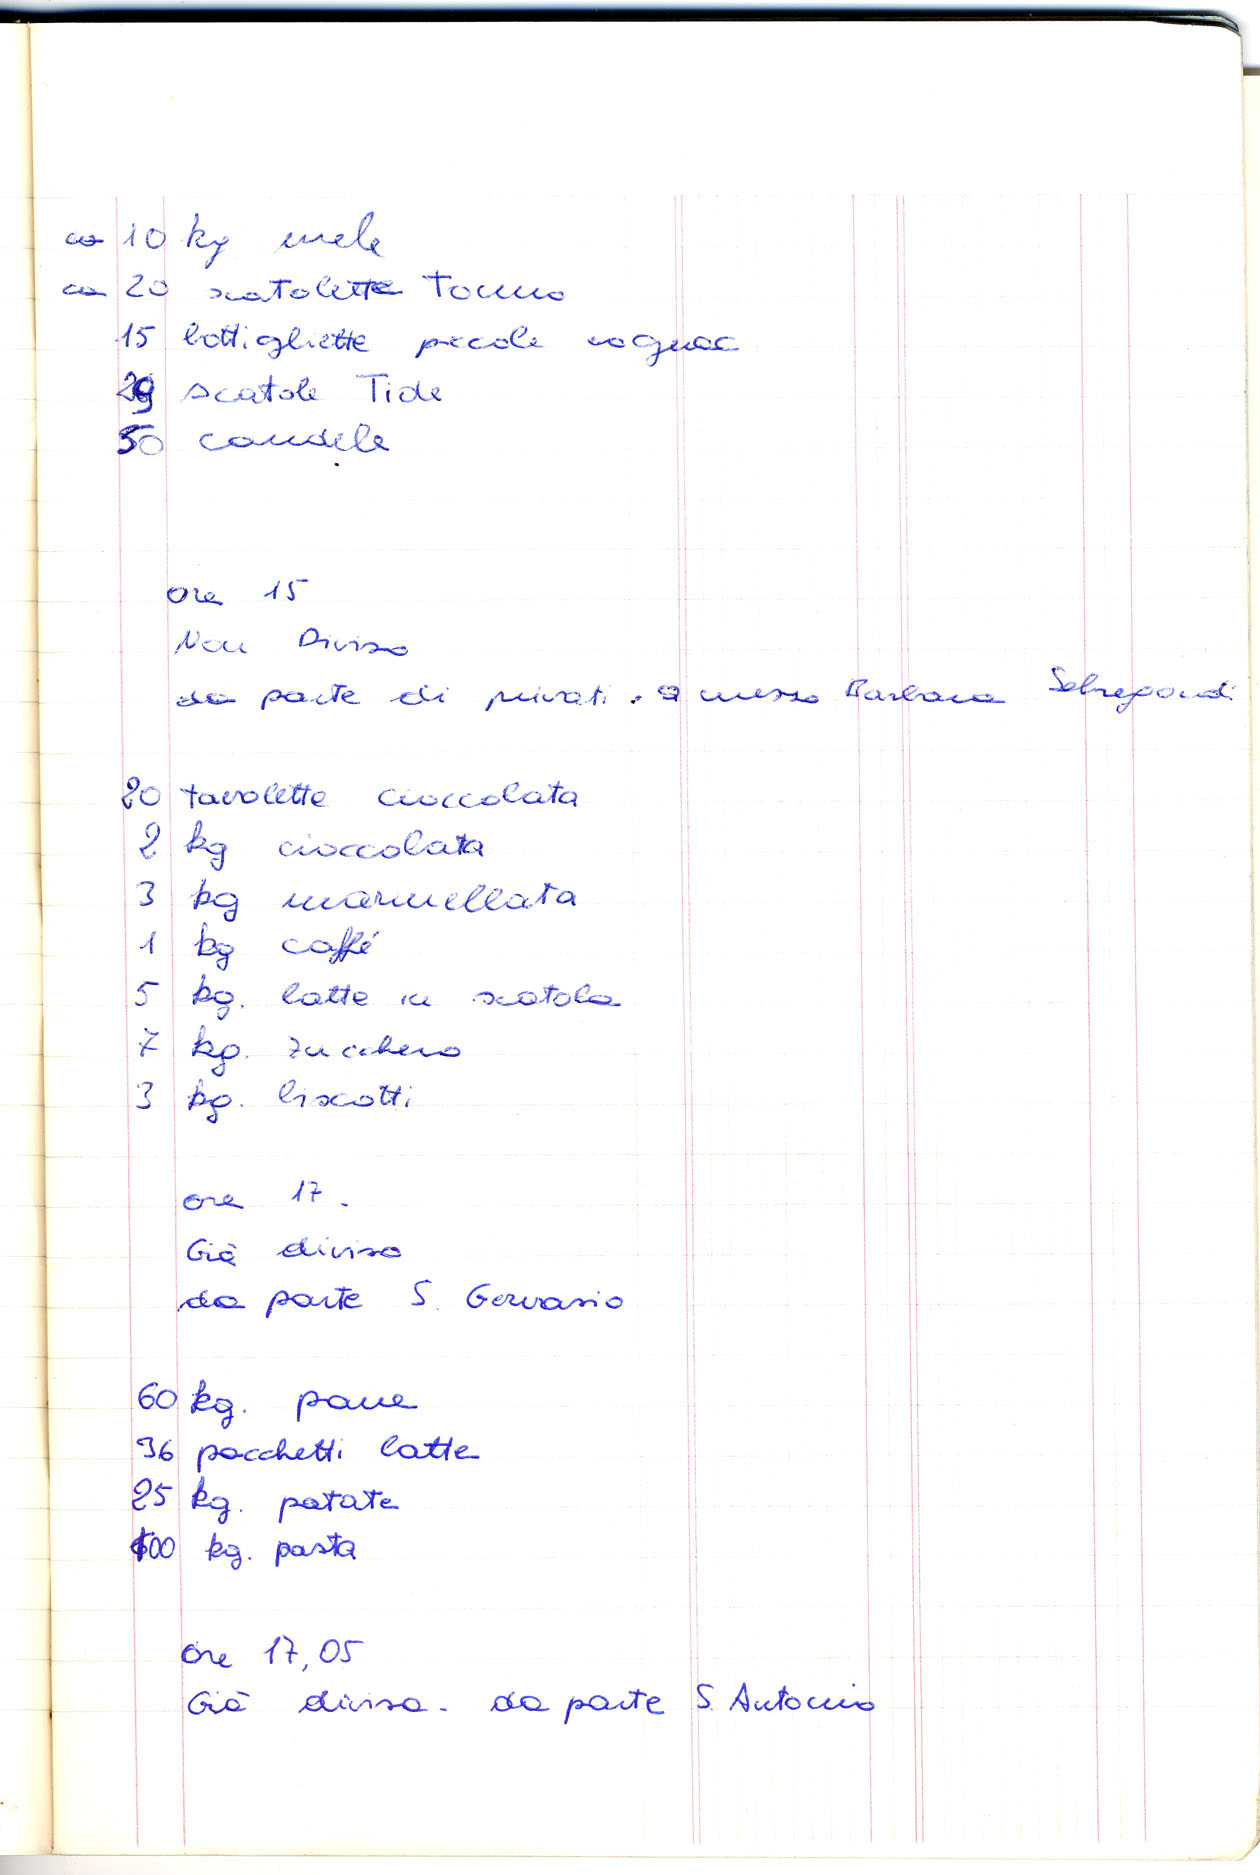 ca 10 kg mele
ca 20 scatolette Tonno
15 bottigliette piccole cognac
29 scatole Tide
50 candele
ore 15
Non Diviso
da parte di privati . a mezzo Barbara Sebregondi
20 tavolette cioccolata
2 kg cioccolata
3 kg marmellata
1 kg caffé
5 kg. latte in scatola
7 kg. zucchero
3 kg. biscotti
ore 17.
Già diviso
da parte S. Gervasio
60 kg. pane
36 pacchetti latte
25 kg. patate
100 kg. pasta
ore 17,05
Già divisa. da parte S. Antonio